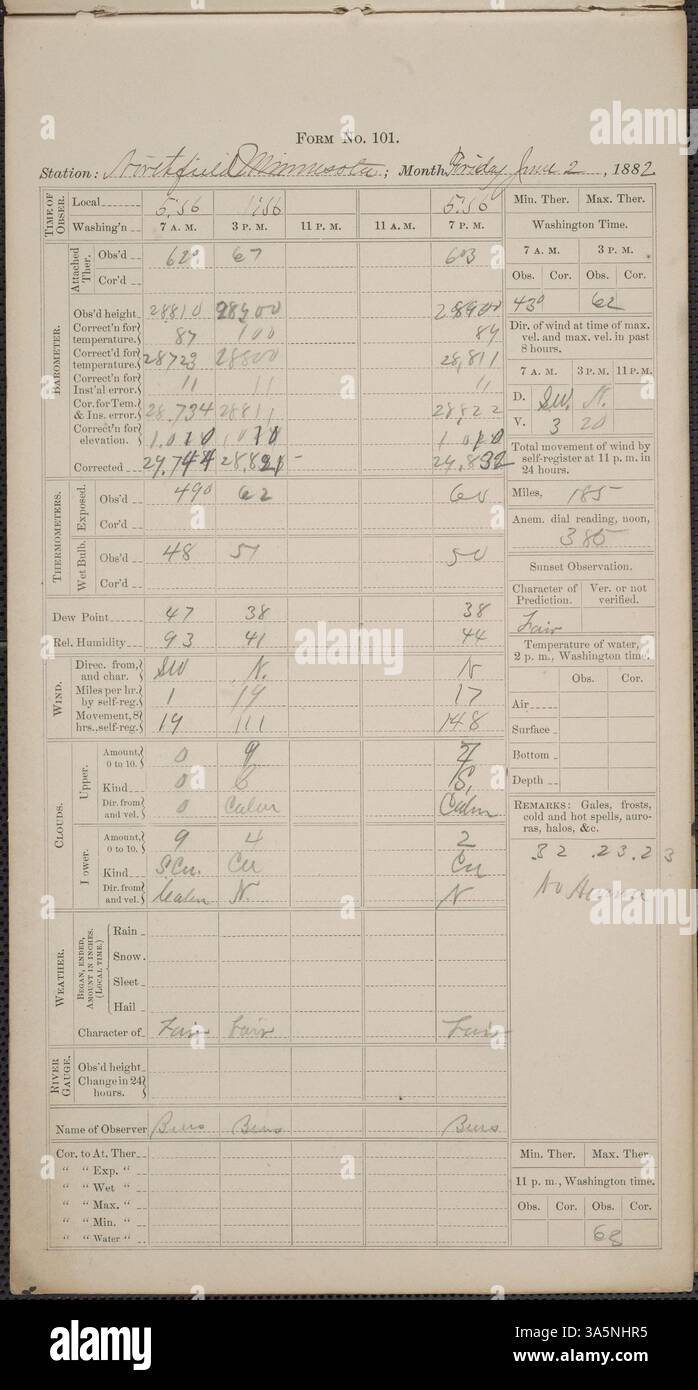 FORM NO. 101.
Station: Northfield Minnesota; Month Friday June 2, 1882
TIME OF OBSER.
Local 5.56 1.56 5.56
Washing'n 7 A. M. 3 P. M. 11 P. M. 11 A. M. 7 P. M.
Min. Ther. Max. Ther.
Washington Time.
7 A. M. 3 P. M.
Obs. Cor. Obs. Cor.
430 62
BAROMETER.
Attached Ther.
Obs'd 620 67 603
Cor'd
Obs'd height 28810 28900 28900
Correct'n for temperature. 87 100 89
Correct'd for temperature. 28723 28800 28,811
Correct'n for Inst'al error. 11 11 11
Cor. for Tem. & Ins. error. 28,734 28811 28822
Correct'n for elevation. 1,010 1010 1010
Corrected 29,744 28,821 29,832
Dir. of wind at time of max. vel. and max. vel. in past 8 hours.
7 A. M. 3 P. M. 11 P. M.
D. SW. N.
V. 3 20
Total movement of wind by self-register at 11 p. m. in 24 hours.
Miles, 185
Anem. dial reading, noon,
385
THERMOMETERS.
Exposed.
Obs'd 490 62 60
Cor'd
Wet Bulb.
Obs'd 48 51 50
Cor'd
Sunset Observation.
Character of Prediction. Ver. or not verified.
Fair
Dew Point 47 38 38
Rel. Humidity 93 41 44
Temperature of water, 2 p. m., Washington time.
Obs. Cor.
Air
Surface
Bottom
Depth
WIND.
Direc. from, and char. SW N. N
Miles per hr. by self-reg. 1 19 17
Movement, 8 hrs., self-reg. 19 111 148
CLOUDS.
Upper.
Amount, 0 to 10. 0 9
Kind 0 C S.
Dir. from and vel. 0 Calm Calm
Lower.
Amount, 0 to 10. 9 4 2
Kind S.Cu. Cu Cu
Dir. from and vel. Calm N. N
REMARKS: Gales, frosts, cold and hot spells, auroras, halos, &c.
32 .23.23
No
WEATHER.
BEGAN, ENDED, AMOUNT IN INCHES. (LOCAL TIME.)
Rain
Snow
Sleet
Hail
Character of Fair Fair Fair
RIVER GAUGE.
Obs'd height
Change in 24 hours.
Name of Observer
Cor. to At. Ther
" " Exp. "
" " Wet "
" " Max. "
" " Min. "
" " Water "
Min. Ther. Max. Ther.
11 p. m., Washington time.
Obs. Cor. Obs. Cor.
68
alamy
Image ID: 3A5NHR5
www.alamy.com